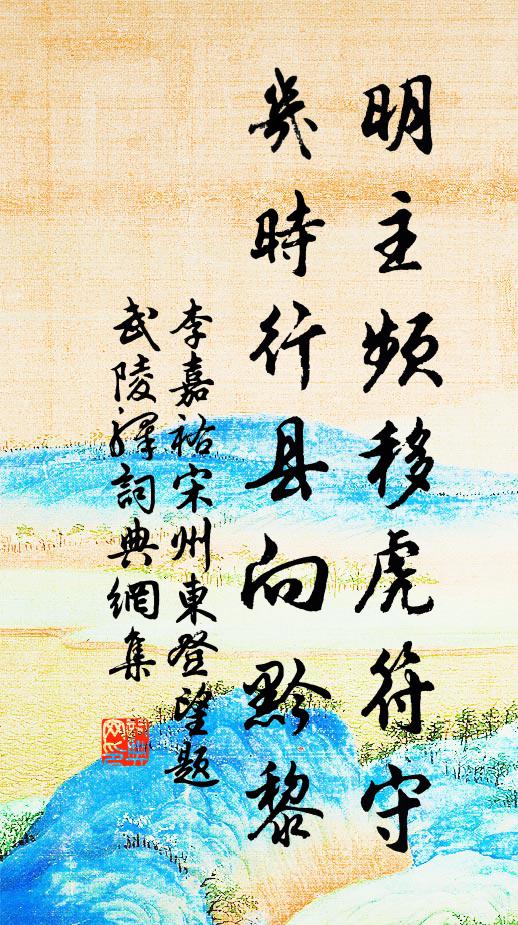 明主频移虎符守
幾時行县向黔黎
李嘉祐宋州東登望題
武陵驛詞典網集